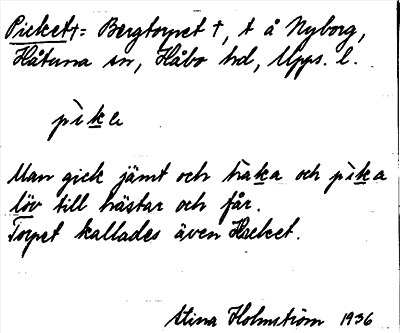 Picket†= Bergtorpet †, t å Nyborg,
Håtuna sn, Håbo hd, Upps. l.
pìke
Man gick jämt och haka och pìka
löv till hästar och får.
Torpet kallades även Hacket.
Stina Holmström 1936